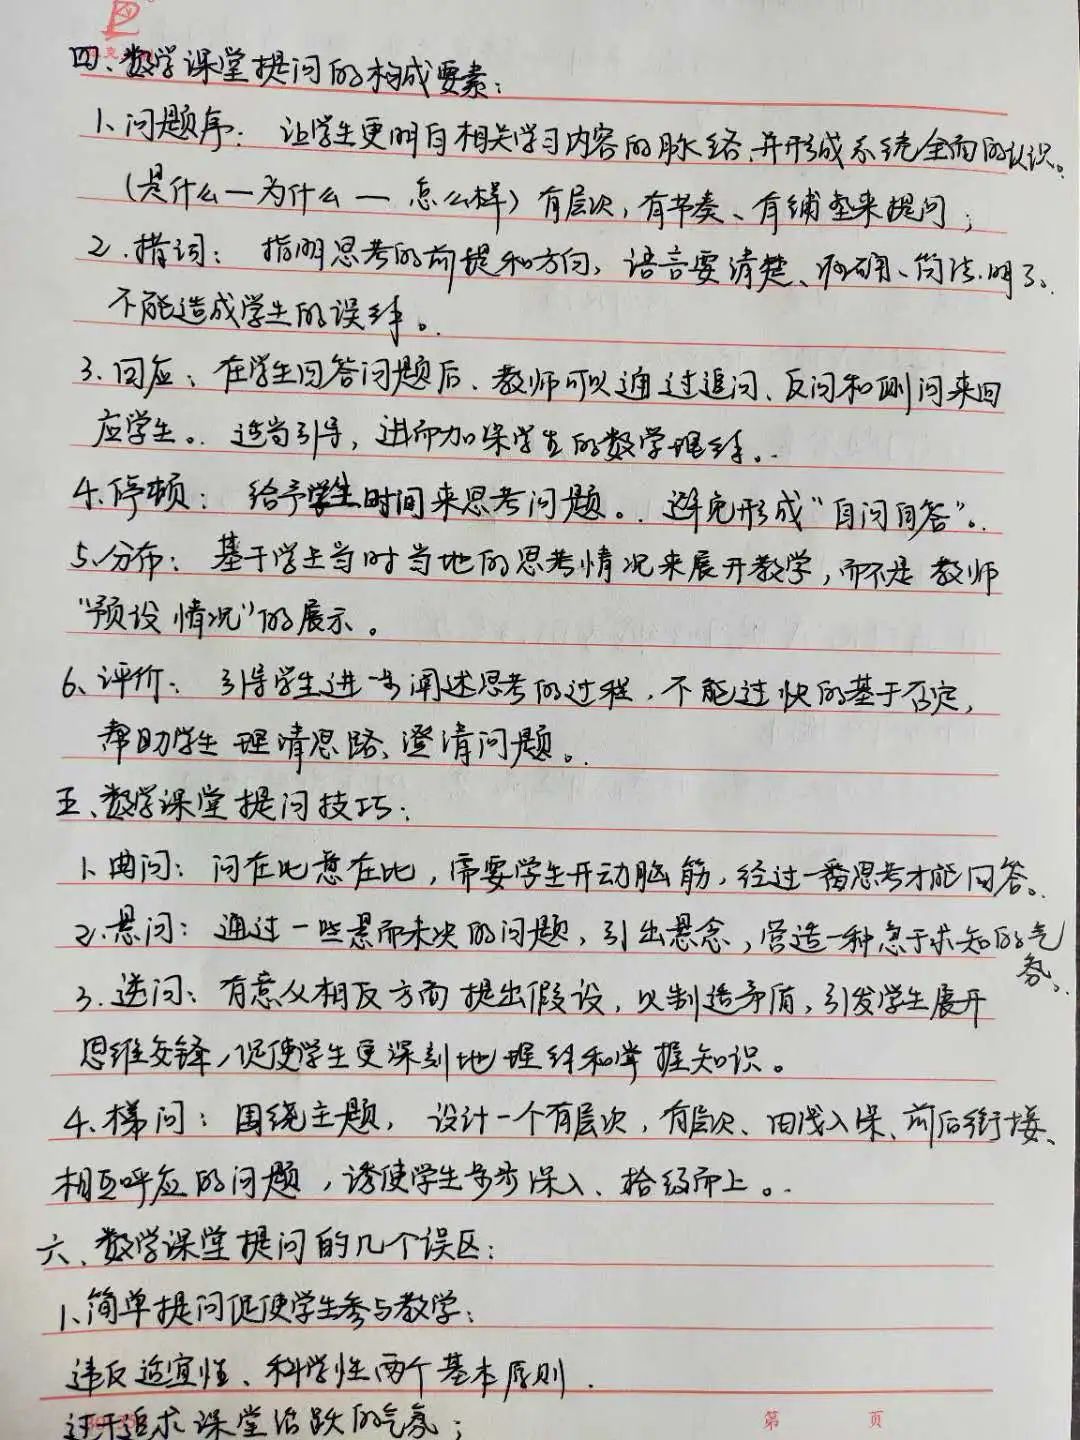 四、数学课堂提问的构成要素：
1、问题序：让学生更明白相关学习内容的脉络，并形成系统全面的认识。
（是什么—为什么—怎么样）有层次，有节奏、有铺垫来提问；
2、措词：指明思考的前提和方向，语言要清楚、准确、简洁.明了、
不能造成学生的误解。
3、回应：在学生回答问题后、教师可以通过追问、反问和侧问来回
应学生。适当引导，进而加深学生的数学理解。
4、停顿：给予学生时间来思考问题。避免形成“自问自答”。
5、分布：基于学生当时当地的思考情况来展开教学，而不是教师
“预设情况”的展示。
6、评价：引导学生进一步阐述思考的过程，不能过快的基于否定，
帮助学生理清思路、澄清问题。
五、数学课堂提问技巧：
1、曲问：问在此意在比，需要学生开动脑筋，经过一番思考才能回答。
2、悬问：通过一些悬而未决的问题，引出悬念，营造一种急于求知的气
氛。
3、逆问：有意从相反方面提出假设，以制造矛盾，引发学生展开
思维交锋，促使学生更深刻地理解和掌握知识。
4、梯问：围绕主题，设计一个有层次，有层次、由浅入深、前后衔接、
相互呼应的问题，诱使学生步步深入、拾级而上。
六、数学课堂提问的几个误区：
1、简单提问促使学生参与教学：
违反适宜性、科学性两个基本原则.
过于追求课堂活跃的气氛；
第 页